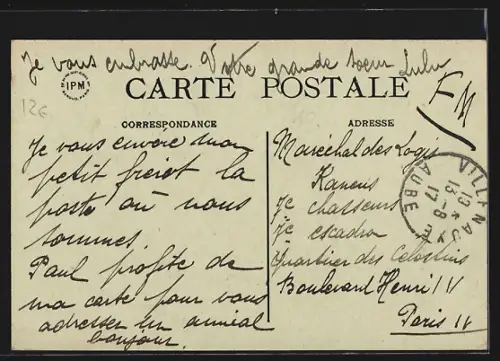 Je vous embrasse. Votre grande soeur Lulu
IPM
CARTE POSTALE
12€
FM
CORRESPONDANCE
Je vous envoie mon
petit frère la
poste où nous
sommes.
Paul profite de
ma carte pour vous
adresser un amical
bonjour.
ADRESSE
Maréchal des Logis
7e chasseurs
7e escadron
Quartier des Célestins
Boulevard Henri IV
Paris IV
AUBE
13 * 
13 -8
17